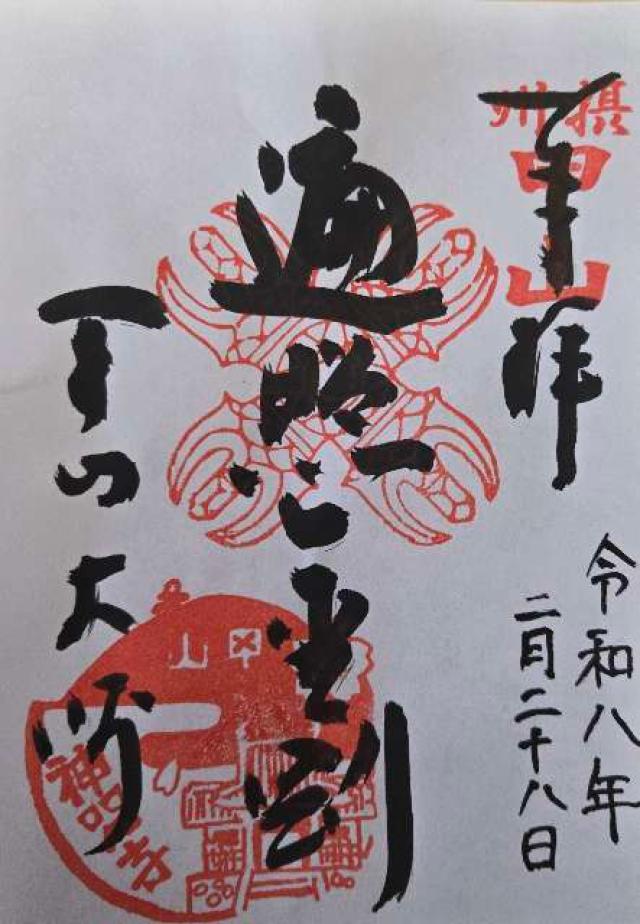 摂州
甲山
奉拝
令和八年
二月二十八日
遍照金剛
甲山
神呪寺